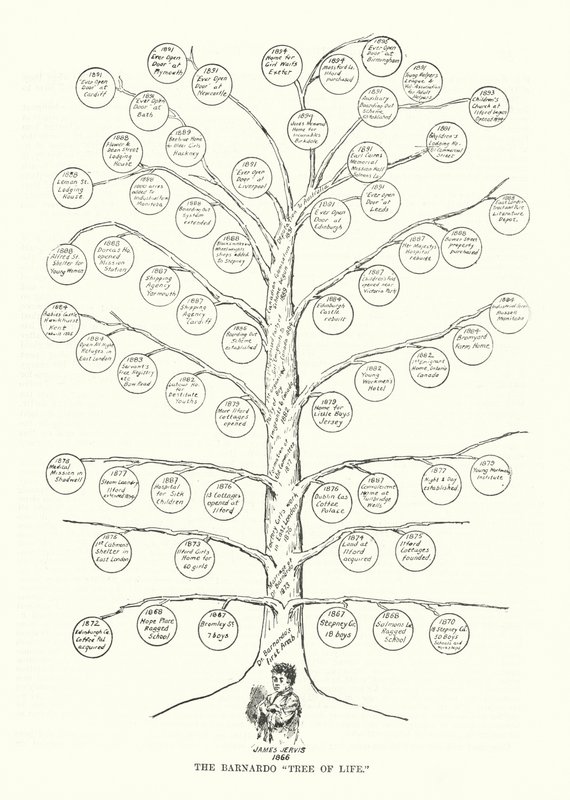 1895
"Ever Open
Door" at
Birmingham
1891
Ever Open
Door" at
Plymouth
1894
Home for
Girl Waifs
Exeter
1894
Ilford
purchased
1891
Young Helpers
League &
1891
"Ever Open
Door" at
Cardiff
1891
"Ever Open
Door" at
Newcastle
1893
Children's
Church at
Ilford
1891
"Ever Open
Door" at
Bath
1891
Auxiliary
Boarding Out
Scheme
established
1894
Home for
Incurables
Birkdale
1889
Beehive Home
for Older Girls
Hackney
1888
Flower &
Dean Street
Lodging
House
Lodging Ho.
Commercial
Street
1888
Leman St.
Lodging
House
1891
"Ever Open
Door" at
Liverpool
1891
Earl Cairns
Memorial
Mission Hall
1888
added to
Industrial Farm
Manitoba
1888
Boarding Out
System
extended
1891
Ever Open
Door" at
Edinburgh
1891
"Ever Open
Door" at
Leeds
1888
East London
Tract and Pure
Literature
Depot.
1888
Alfred St.
Shelter for
Young Women
1888
Dorcas Ho.
opened
Mission
Station
1888
shops added
In Stepney
1887
Her Majesty's
Hospital
rebuilt
1888
Bower Street
property
purchased
1887
Shipping
Agency
Yarmouth
1887
Children's
opened near
Victoria Park
1887
Shipping
Agency
Cardiff
1886
Boarding Out
Scheme
established
1884
Edinburgh
Castle
rebuilt
1884
Babies Castle
Hawkhurst
Kent
1884
Open All Night
Refuges in
East London
1884
Industrial Farm
Russell
Manitoba
1884
Bromyard
Farm Home
1883
Servants
Free Registry
etc
Bow Road
1882
Labour Ho.
for
Destitute
Youths
1882
Home, Ontario
Canada
1882
Young
Workmens
Hotel
1879
More Ilford
cottages
opened
1879
Home for
Little Boys
Jersey
1878
Medical
Mission in
Shadwell
1877
Steam Laundry
Ilford
1887
Hospital
for Sick
Children
1876
13 Cottages
opened at
Ilford
1876
Dublin Cas
Coffee
Palace
1887
Convalescent
Home at
Tunbridge
Wells
1877
Night & Day
established
1875
Young Workmens
Institute
Shelter in
East London
1873
Ilford Girls
Home for
60 girls
1874
Land at
Ilford
acquired
1875
Ilford
Cottages
founded.
1872
Edinburgh Ca
Coffee Pal.
acquired
1868
Hope Place
Ragged
School
1867
Bromley St
7 boys
1867
Stepney Ca.
18 boys
1868
Salmons La
Ragged
School
1870
18 Stepney Ca.
50 Boys
Schools and
Workshops
Girls work
in East London
1876
Marriage of
Dr Barnardo
1873
Dr. Barnardo's
first Arab.
JAMES JERVIS
1866
THE BARNARDO "TREE OF LIFE."